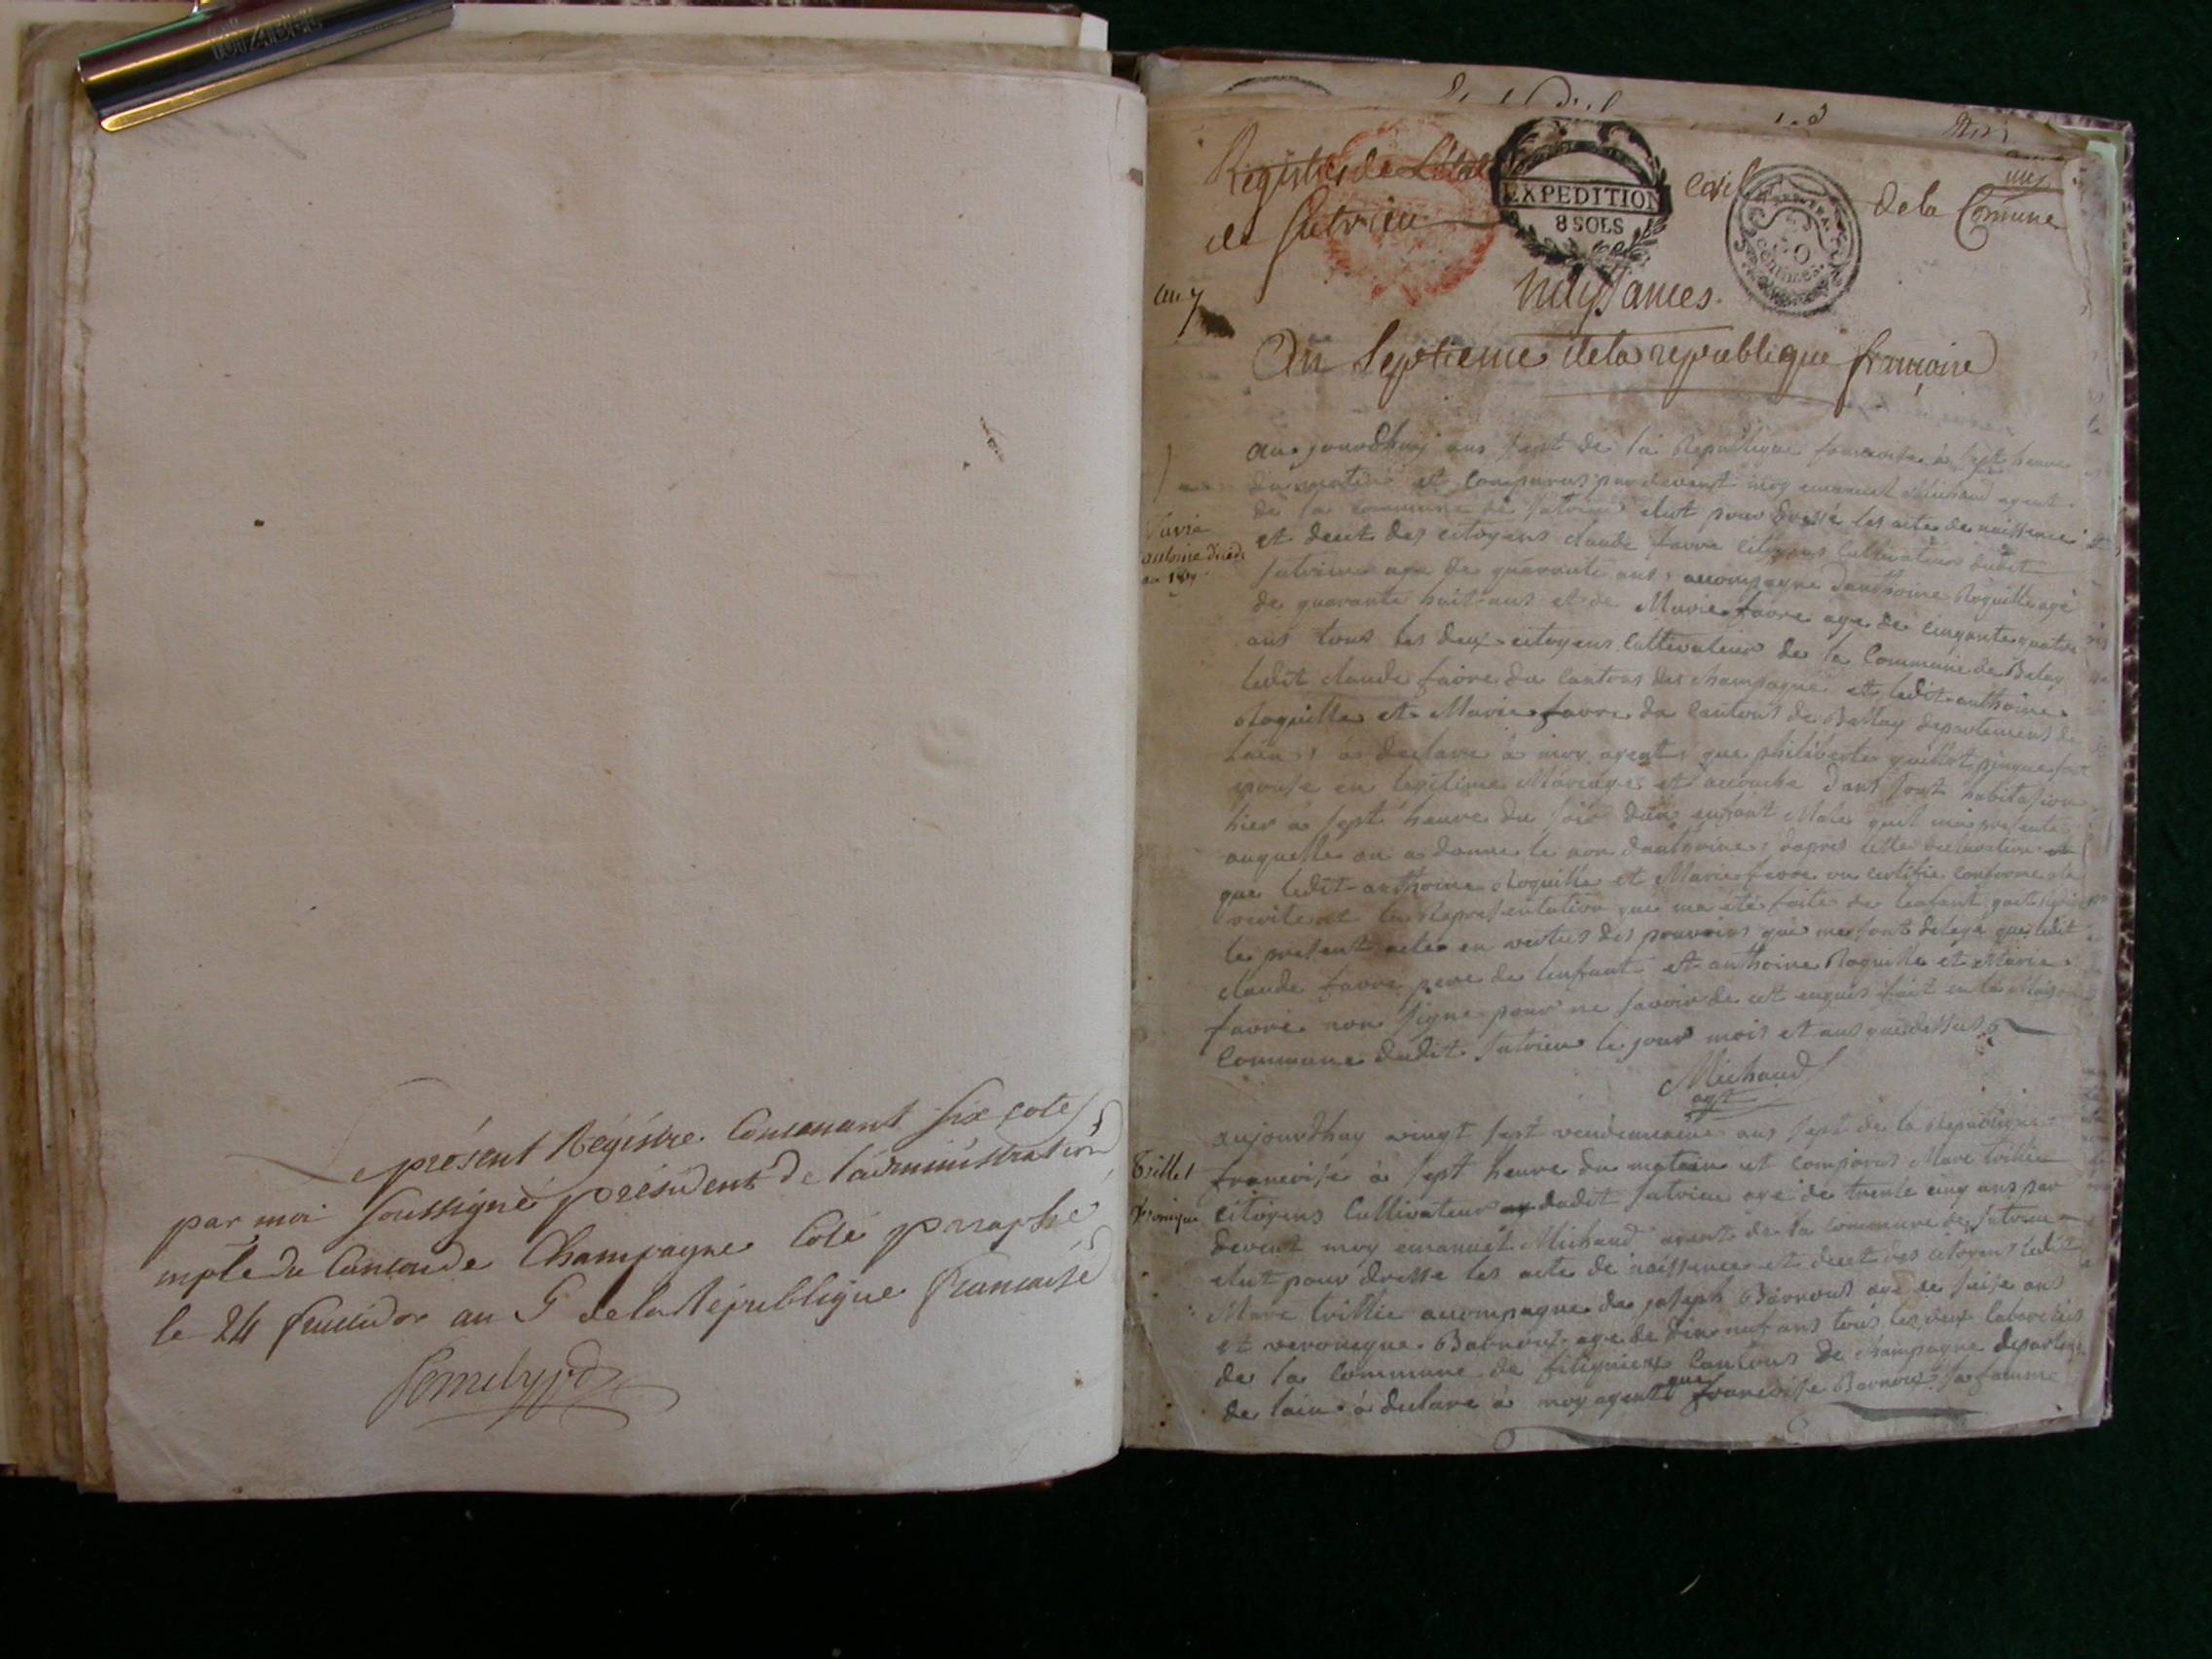 présent Régistre Contenant six cotes
par moi soussigné président de l'administration
mple du Canton de Champagne Coté parraphé
le 24 fructidor an 6 de la République francaise
Registres de L'état civil de la Comune
de Sutrieu
EXPEDITION
8 SOLS
50
CENTIMES
an 7
Naissances.
An Septieme de la republique françoise
aujourdhuy ans sept de la Republique francoise à sept heure
du matin et comparus par devent moy emanuel Michaud agent
de la commune de Sutrieu elut pour dressé les acte de naissence
et decet des citoyens claude favre citoyens Cultivateur dudit
Sutrieu age de quarante ans, accompagne danthoine Roquille agé
de quarante huit ans et de Marie favre age de cinquante quatre
ans tous les deux citoyens Cultivateur de la Commune de Beley
ledit claude favre du cantons de champagne et ledit anthoine
Roquille et Marie favre du cantons de Belley departement de
lain, à declare à moy agent, que philiberte
epouse en legitime Mareage et accouche dans sont habitasion
hier à sept heure du soir dun enfant Male quil ma presente
auquelle on a donne le non danthoine, dapres cette declaration
que ledit anthoine Roquille et Marie favre on certifie conforme a la
verite et la Representation que ma été faite de lenfant
le present acte en vertus des pouvoirs qui me sont delegé que ledit
claude favre pere de lenfant et anthoine Roquille et Marie
favre non signe pour ne savoir de cet enquis fait en la Maison
Commune dudit Sutrieu le jour mois et ans que dessus
Michaud
agt
Favre
antoine
Trillet
Veronique
aujourdhuy vingt sept vendemiaire ans sept de la Republique
francoise à sept heure du matein et comparus Marc trillie
citoyens Cultivateur dudit Sutrieu agé de trente cinq ans par
devent moy emanuel Michaud agent de la commune de Sutrieu
elut pour dresse les acte de naissence et decet des citoyens ledit
Marc trillie accompagne de joseph Barnout age de seise ans
et veronique Barnout age de dix neuf ans tous les deux laboreurs
de la Commune de fitignieu Cantons de champagne departement
de lain à declare à moy agent que francoise Barnout sa famme